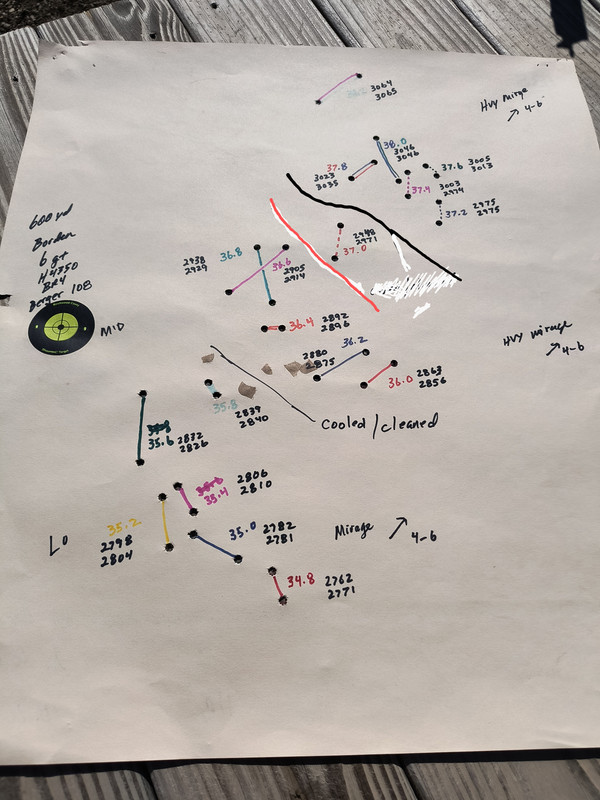 3064
3065
Hvy mirge
4-6
38.0
3046
3046
37.8
3023
3035
37.6 3005
3013
37.4
3003
2974
37.2 2975
2975
600 yd
Borden
6 gt
H4350
BR4
Berger 108
MID
2938
2929
36.8
36.6
2905
2914
2948
2971
37.0
36.4 2892
2896
36.2
2880
2875
36.0 2863
2856
Hvy mirage
4-6
35.8
2839
2840
Cooled/cleaned
35.6 2832
2826
35.4
2806
2810
LO
35.2
2798
2804
35.0 2782
2781
Mirage
4-6
34.8 2762
2771